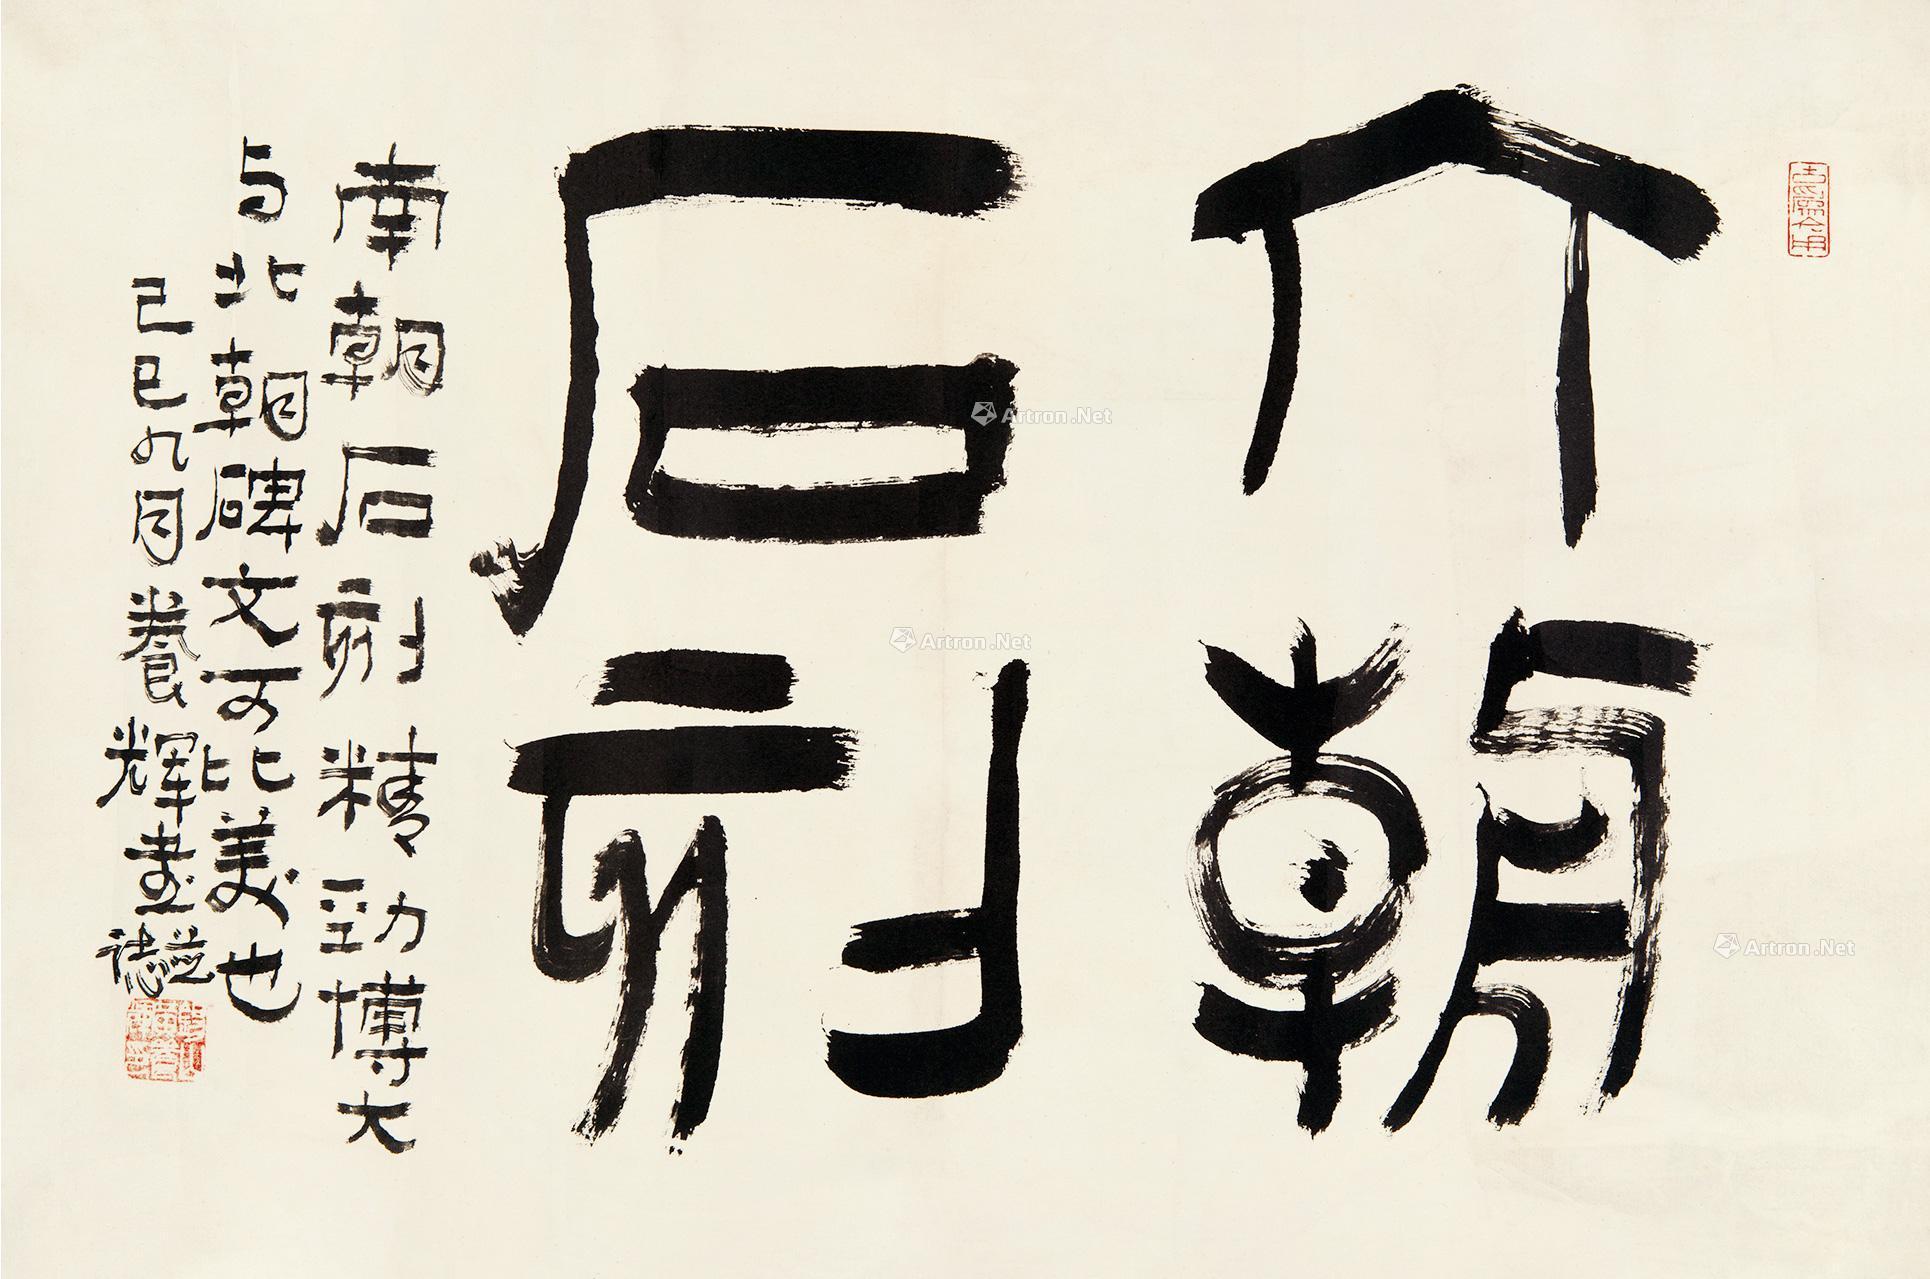 六朝
石刻
南朝石刻精劲博大
与北朝碑文可比美也
己巳九月養輝书並誌
Artron.Net
Artron.Net
Artron.Net